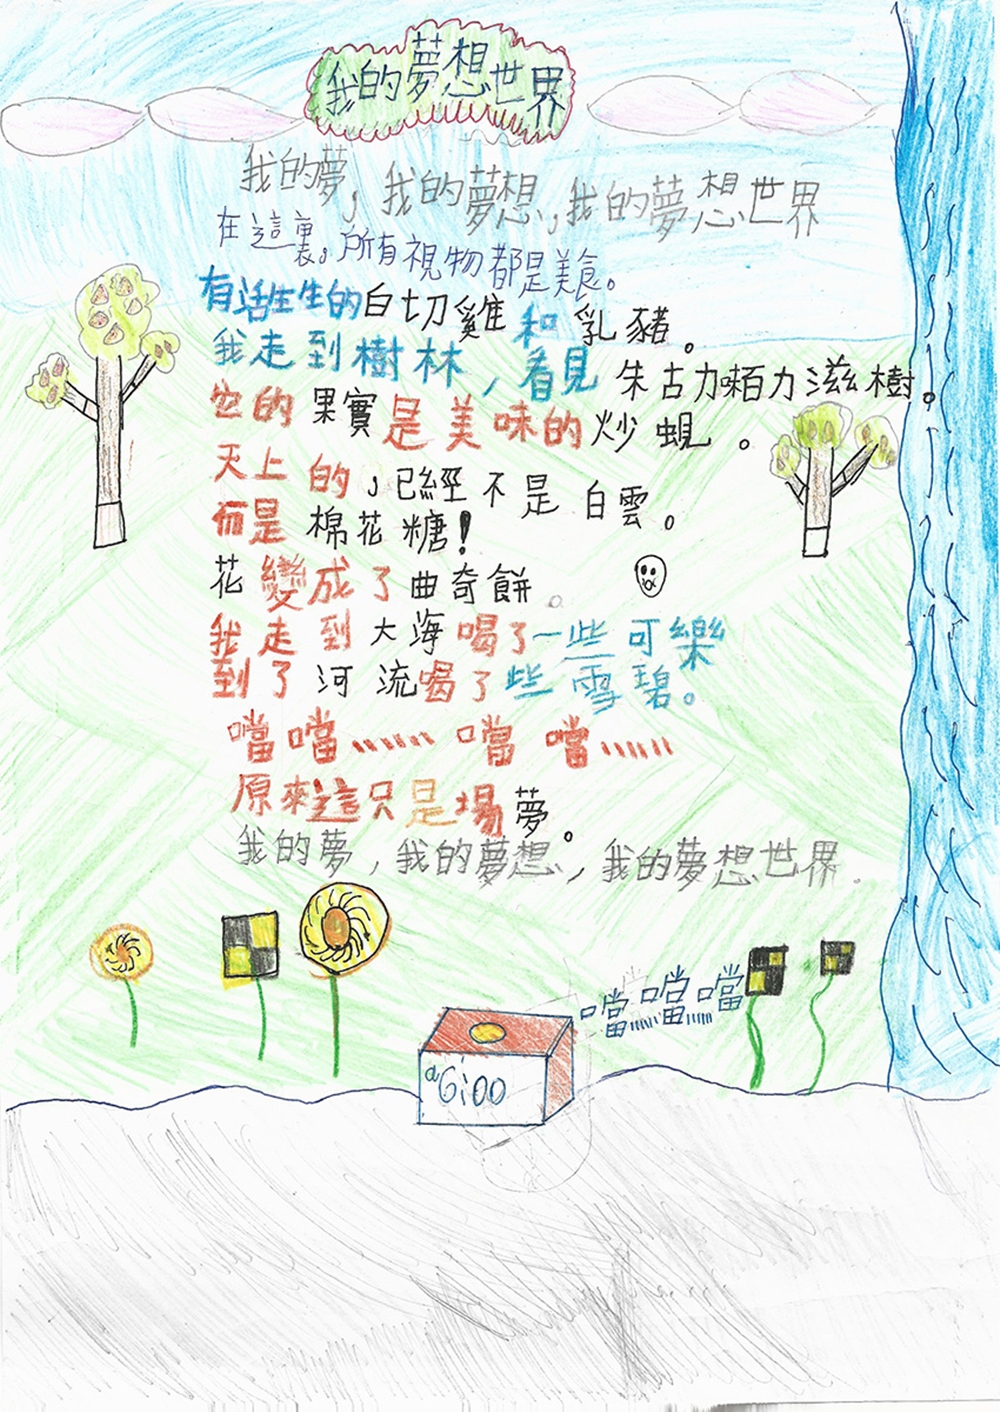 我的夢想世界
我的夢,我的夢想,我的夢想世界
在這裏。所有視物都是美食。
有活生生的白切雞和乳豬。
我走到樹林,看見朱古力味百力滋樹。
它的果實是美味的炒蜆。
天上的,已經不是白雲。
而是棉花糖!
花變成了曲奇餅。
我走到大海喝了一些可樂
到了河流喝了些雪碧。
噹噹……噹噹……
原來這只是場夢。
我的夢,我的夢想,我的夢想世界.
噹…噹…噹
a6:00